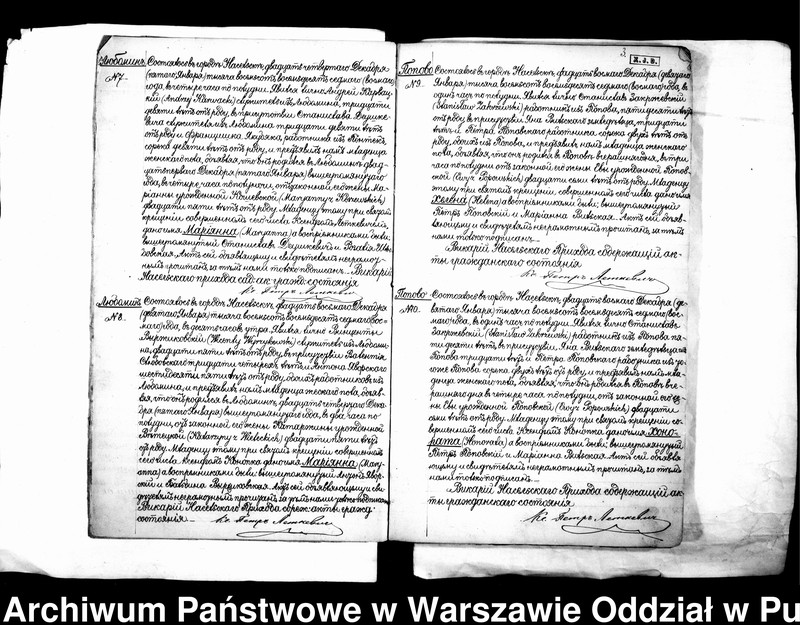 Любоминъ
№7.
Состоялось въ городѣ Насельскъ, двадцать четвертаго Декабря
(пятаго Января) тысяча восемьсотъ восемьдесятъ седьмаго (восьмаго)
года, въ четыре часа по полудни. Явился лично Андрей
(Andrzej
девяти лѣтъ отъ роду, въ присутствіи Станислава
лѣтъ
отъ роду и Францишка работника изъ
сорока девяти лѣтъ отъ роду, и предъявилъ намъ младенца
женскаго пола, объявляя, что онъ родился въ Любоминѣ двад-
цать перваго Декабря (пятаго Января) вышеупомянутаго
года, въ четыре часа по полуночи, отъ законной его жены Ма-
ріанны урожденной
двадцати пяти лѣтъ отъ роду. Младенцу этому при святомъ
крещеніи совершенномъ сего числа Ксендзомъ Леткевичемъ,
дано имя Маріянна (Maryanna) а воспріемниками были:
вышеупомянутый Станиславъ и Розалія
Актъ сей объявляющему и свидѣтелямъ неграмот-
нымъ прочитанъ, за тѣмъ нами только подписанъ. Викарій
Насельскаго прихода сод. ак. гражд. состоянія
Кс. Петръ Леткевичъ
Любоминъ
№8.
Состоялось въ городѣ Насельскъ, двадцать восьмаго Декабря
(девятаго Января) тысяча восемьсотъ восемьдесятъ седьмаго (вось-
маго) года, въ десять часовъ утра. Явился лично Винцентій
(Wincenty
на, двадцати пяти лѣтъ отъ роду, въ присутствіи Валентія
тридцати четырехъ лѣтъ и Антона Яворскаго
шестидесяти пяти лѣтъ отъ роду, обоихъ работниковъ изъ
Любомина, и предъявилъ намъ младенца женскаго пола, объяв-
ляя, что онъ родился въ Любоминѣ, двадцать четвертаго Дека-
бря (пятаго Января) вышеупомянутаго года, въ два часа по
полудни, отъ законной его жены Катаржины урожденной
(Katarzyny z двадцати пяти лѣтъ
отъ роду. Младенцу этому при святомъ крещеніи совершенномъ
сего числа Ксендзомъ Конопка дано имя Маріянна (Mary-
anna) а воспріемниками были: вышеупомянутый Антонъ Явор-
скій и Актъ сей объявляющему и сви-
дѣтелямъ неграмотнымъ прочитанъ, за тѣмъ нами только подписанъ.
Викарій Насельскаго Прихода содерж. акты гражд.
состоянія
Кс. Петръ Леткевичъ
Попово
№9.
Состоялось въ городѣ Насельскъ, двадцать восьмаго Декабря (девятаго
Января) тысяча восемьсотъ восемьдесятъ седьмаго (восьмаго) года, въ
одинъ часъ по полудни. Явился лично Станиславъ Закржевскій
(Stanisław работникъ изъ Попова, пятидесяти лѣтъ
отъ роду, въ присутствіи Яна тридцати
лѣтъ и Петра Поповскаго работника, сорока двухъ лѣтъ отъ
роду, обоихъ изъ Попова, и предъявилъ намъ младенца женскаго
пола, объявляя, что онъ родился въ Поповѣ вчерашняго дня, въ три
часа по полудни отъ законной его жены Евы урожденной Попов-
ской (Ewy z Popowskich) двадцати семи лѣтъ отъ роду. Младенцу
этому при святомъ крещеніи, совершенномъ сего числа дано имя
Хелена (Helena) а воспріемниками были: вышеупомянутый
Петръ Поповскій и Маріанна Актъ сей объяв-
ляющему и свидѣтелямъ неграмотнымъ прочитанъ, за тѣмъ
нами только подписанъ.
Викарій Насельскаго Прихода содержащій ак-
ты гражданскаго состоянія
Кс. Петръ Леткевичъ
Попово
№10.
Состоялось въ городѣ Насельскъ, двадцать восьмаго Декабря (де-
вятаго Января) тысяча восемьсотъ восемьдесятъ седьмаго (вось-
маго) года, въ одинъ часъ по полудни. Явился лично Станиславъ
Закржевскій (Stanisław работникъ изъ Попова пя-
тидесяти лѣтъ отъ роду, въ присутствіи Яна
Попова тридцати лѣтъ и Петра Поповскаго работника изъ то-
же Попова сорока двухъ лѣтъ отъ роду, и предъявилъ намъ мла-
денца женскаго пола, объявляя, что онъ родился въ Поповѣ вче-
рашняго дня въ четыре часа по полудни, отъ законной его же-
ны Евы урожденной Поповской (Ewy z Popowskich) двадцати
семи лѣтъ отъ роду. Младенцу этому при святомъ крещеніи, со-
вершенномъ сего числа Ксендзомъ Конопка дано имя Хоно-
рата (Honorata) а воспріемниками были: вышеупомянутый
Петръ Поповскій и Маріанна Актъ сей объявля-
ющему и свидѣтелямъ неграмотнымъ прочитанъ, за тѣмъ
нами только подписанъ.
Викарій Насельскаго Прихода содержащій ак-
ты гражданскаго состоянія
Кс. Петръ Леткевичъ
Archiwum Państwowe w Warszawie Oddział w Pu